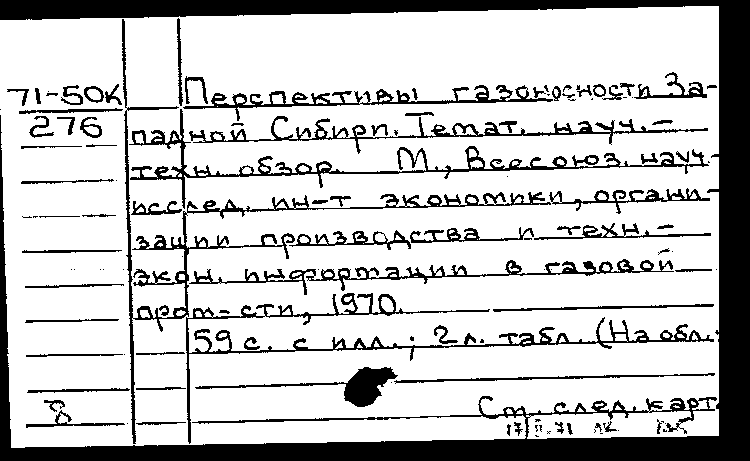 71-50К Перспективы газоносности За-
276 падной Сибири. Темат. науч.-
техн. обзор. М., Всесоюз. науч.-
исслед. ин-т экономики, органи-
зации производства и техн.-
экон. информации в газовой
пром-сти, 1970.
59 с. с илл.; 2 л. табл. (На обл.:
8 См. след. карт
17/II-71 ЛК